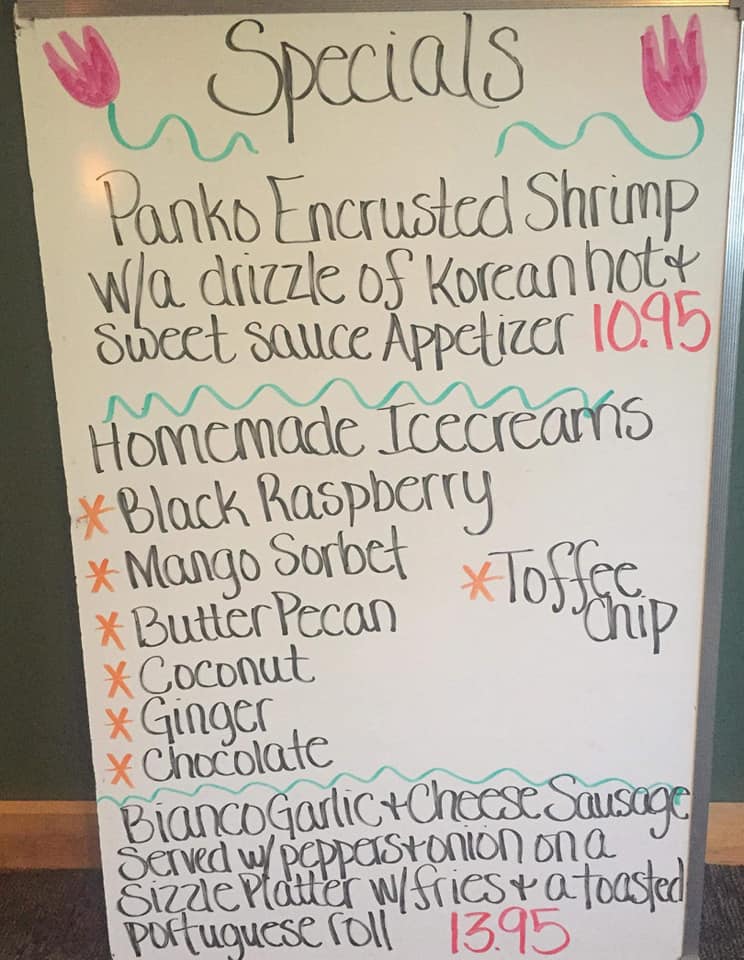 Specials
Panko Encrusted Shrimp
w/a drizzle of Korean hot +
sweet sauce Appetizer 10.95
Homemade Icecreams
* Black Raspberry
* Mango Sorbet
* Toffee
Chip
* Butter Pecan
* Coconut
* Ginger
* Chocolate
Bianco Garlic + Cheese Sausage
Served w/ peppers + onion on a
Sizzle Platter w/ fries + a toasted
portuguese roll 13.95